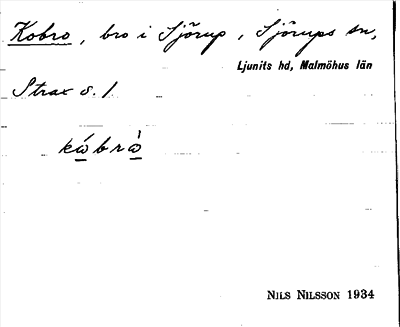 Kobro, bro i Sjörup, Sjörups sn,
Ljunits hd, Malmöhus län
Strax s. l
NILS NILSSON 1934